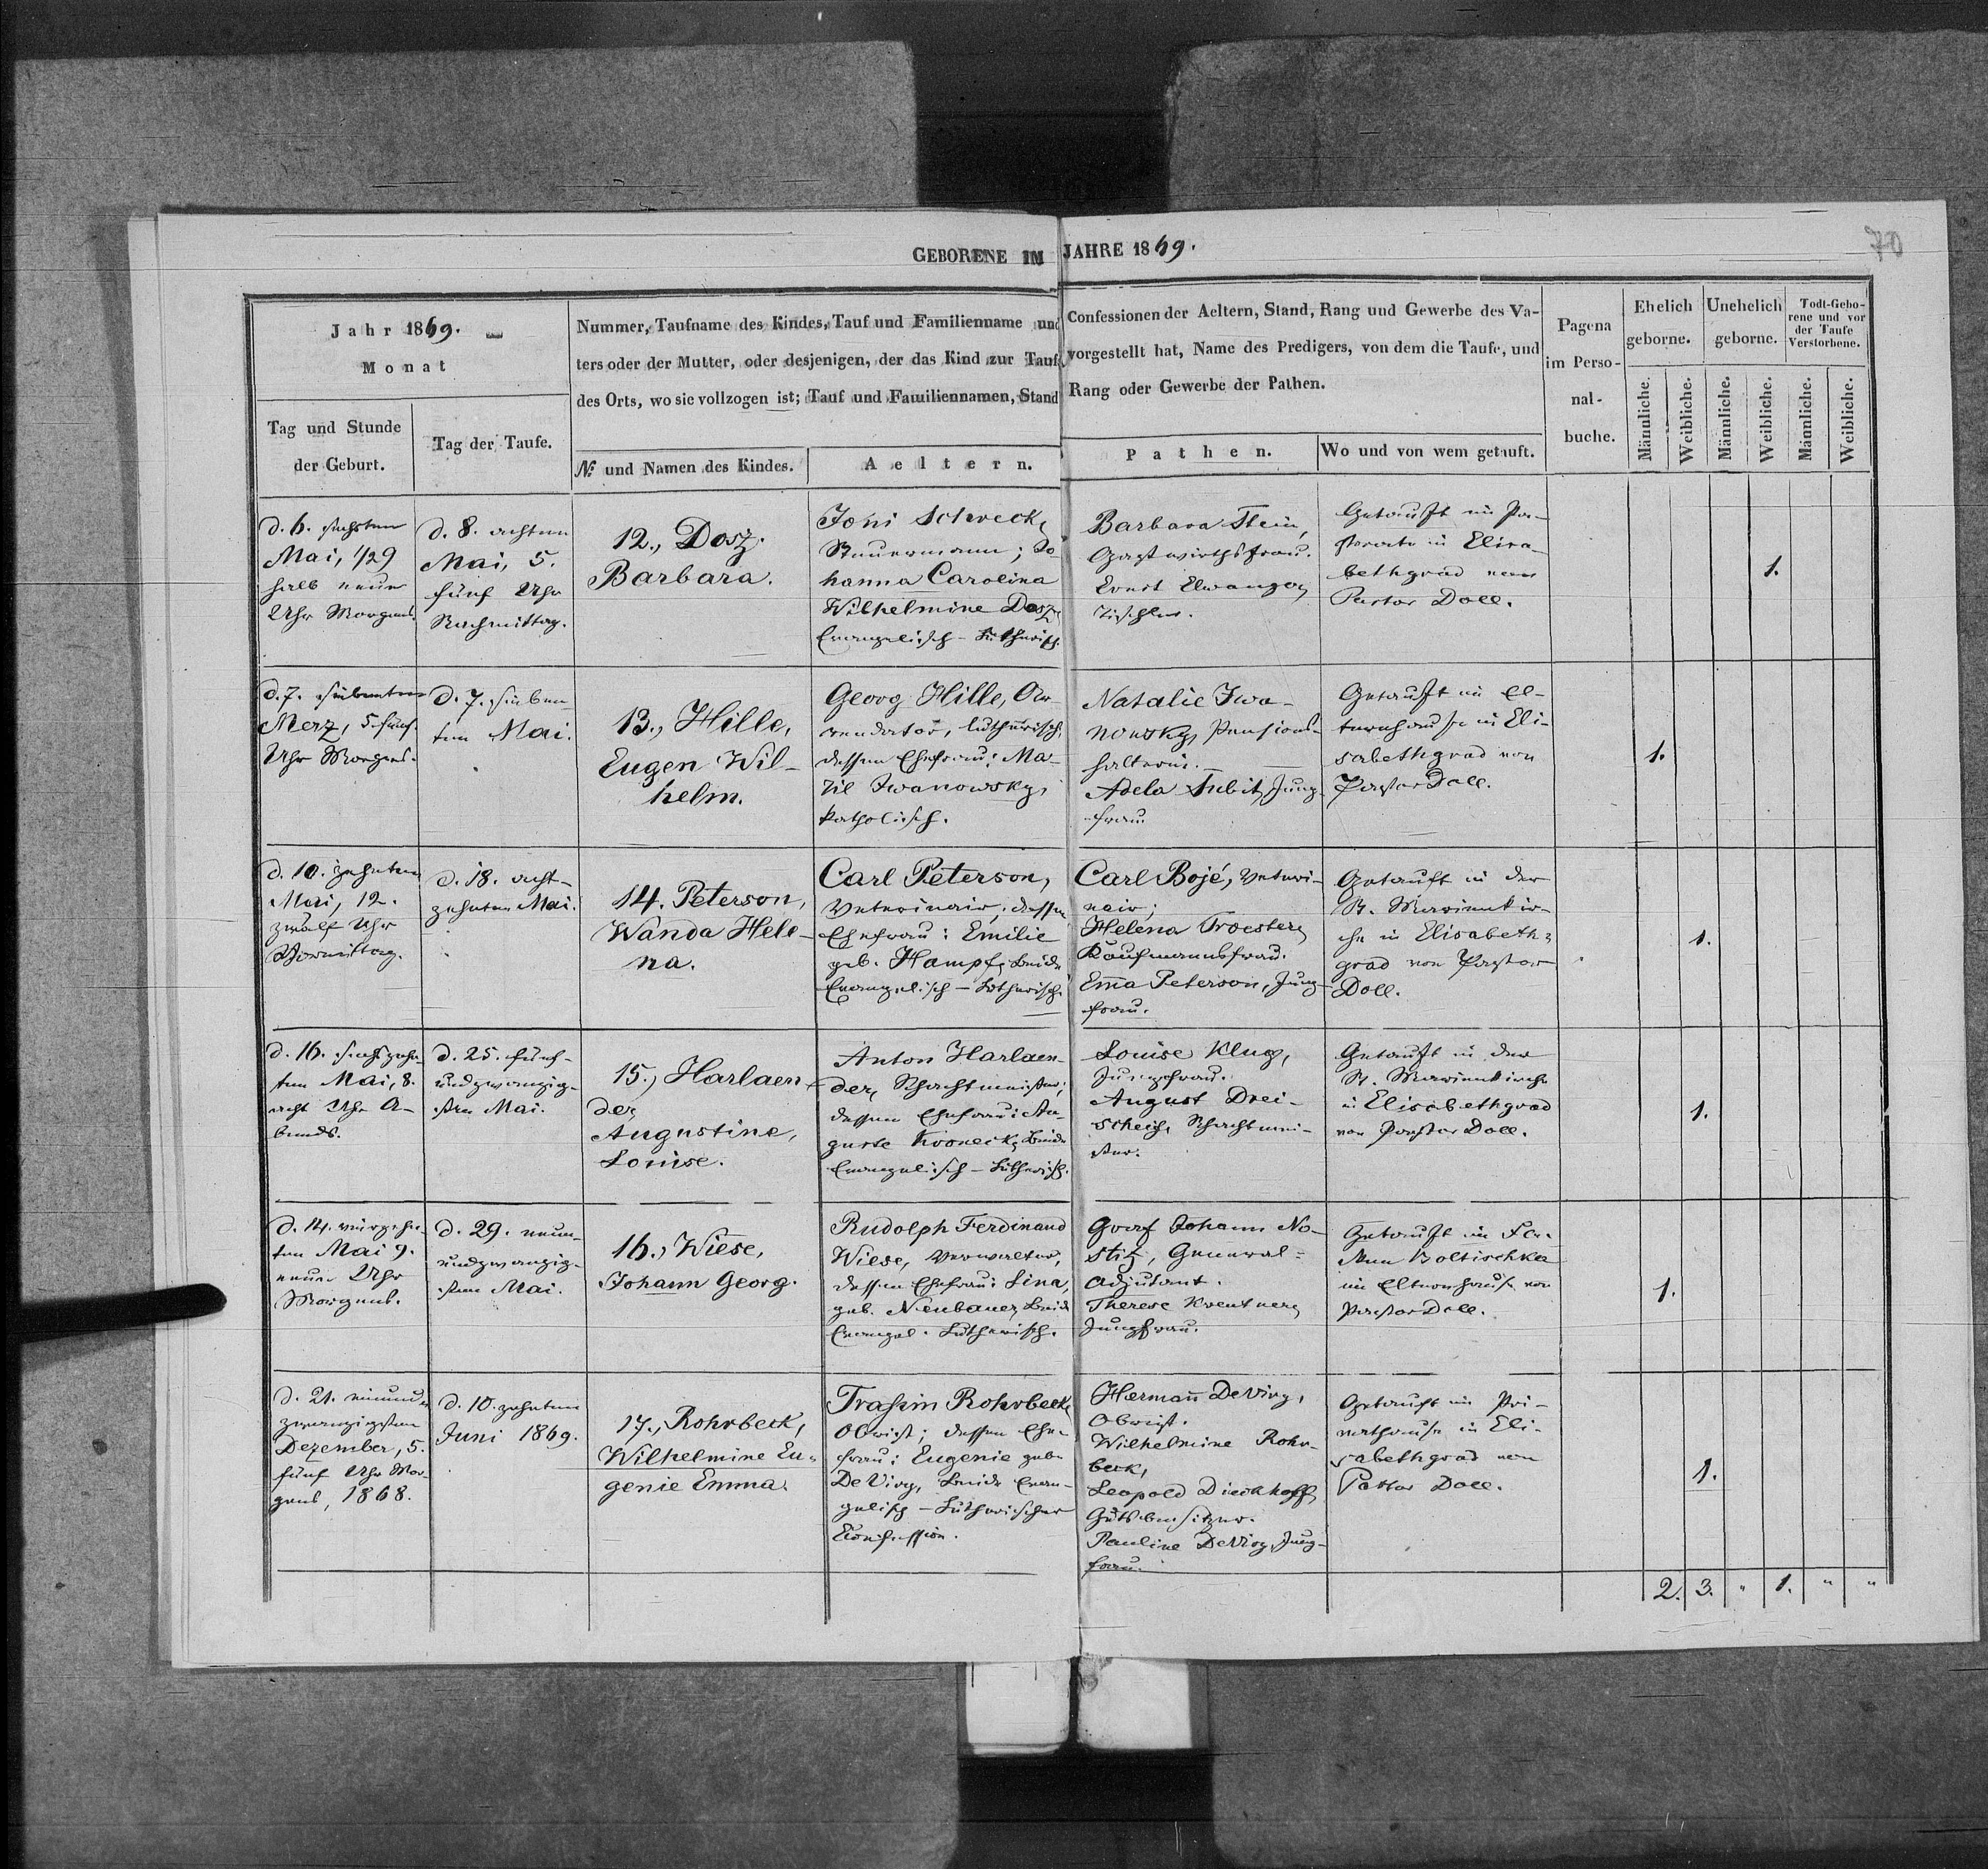 GEBORENE IM JAHRE 1869.
70
Jahr 1869.
Monat
Tag und Stunde
der Geburt.
Tag der Taufe.
Nummer, Taufname des Kindes, Tauf und Familienname und
ters oder der Mutter, oder desjenigen, der das Kind zur Taufe
des Orts, wo sie vollzogen ist; Tauf und Familiennamen, Stand
№ und Namen des Kindes.
Aeltern.
Confessionen der Aeltern, Stand, Rang und Gewerbe des Va-
vorgestellt hat, Name des Predigers, von dem die Taufe, und
Rang oder Gewerbe der Pathen.
Pathen.
Wo und von wem getauft.
Pagena
im Perso-
nal-
buche.
Ehelich
geborne.
Unehelich
geborne.
Todt-Gebo-
rene und vor
der Taufe
Verstorbene.
Männliche.
Weibliche.
Männliche.
Weibliche.
Männliche.
Weibliche.
d. 6. sechsten
Mai, 1/29
halb neun
Uhr Morgens.
d. 8. achten
Mai, 5.
fünf Uhr
Nachmittag.
12., Dosz.
Barbara.
Joni Schreck,
Steuermann; Jo-
hanna Carolina
Wilhelmine Dosz,
Evangelisch-Lutherisch.
Barbara Stein,
Gastwirthsfrau.
Ernst Elwanger,
Tischler.
Getauft im Pa-
storate in Elisa-
bethgrad von
Pastor Doll.
1.
d. 7. siebenten
Merz, 5. fünf
Uhr Morgens.
d. 7. sieben-
ten Mai.
13., Hille,
Eugen Wil-
helm.
Georg Hille, Ar-
rendator, lutherisch,
dessen Ehefrau: Ma-
til Iwanowsky,
katholisch.
Natalie Iwa-
nowsky, Pensions-
halterin.
Adela Subit, Jung-
frau.
Getauft im El-
ternhause in Eli-
sabethgrad von
Pastor Doll.
1.
d. 10. zehnten
Mai, 12.
zwölf Uhr
Vormittag.
d. 18. acht-
zehnten Mai.
14. Peterson,
Wanda Hele-
na.
Carl Peterson,
Veterinair, dessen
Ehefrau: Emilie
geb. Hampf, beide
Evangelisch-Lutherisch.
Carl Bojé, Veteri-
nair;
Helena Troester,
Kaufmannsfrau.
Em̄a Peterson, Jung-
frau.
Getauft in der
St. Marienkir-
che in Elisabeth-
grad von Pastor
Doll.
1.
d. 16. sechszehn-
ten Mai, 8.
acht Uhr A-
bends.
d. 25. fünf-
undzwanzig-
sten Mai.
15., Harlaen-
der,
Augustine,
Louise.
Anton Harlaen-
der, Schachtmeister;
dessen Ehefrau: Au-
guste Kroneck, beide
Evangelisch-Lutherisch.
Louise Klug,
Jungfrau.
August Drei-
scheich, Schachtmei-
ster.
Getauft in der
St. Marienkirche
in Elisabethgrad
von Pastor Doll.
1.
d. 14. vierzehn-
ten Mai 9.
neun Uhr
Morgens.
d. 29. neun-
undzwanzig-
sten Mai.
16., Wiese,
Johann Georg.
Rudolph Ferdinand
Wiese, Verwalter,
dessen Ehefrau: Lina,
geb. Neubauer, beide
Evangel. Lutherisch.
Graf Johann No-
stiz, General-
adjutant.
Therese Kreutner,
Jungfrau.
Getauft im
Boltischka
im Elternhause von
Pastor Doll.
1.
d. 21. einund-
zwanzigsten
Dezember, 5.
fünf Uhr Mor-
gens, 1868.
d. 10. zehnten
Juni 1869.
17., Rohrbeck,
Wilhelmine Eu-
genie Emma.
Trasim Rohrbeck,
Obrist; dessen Ehe-
frau: Eugenie geb.
DeVivy, beide Evan-
gelisch-Lutherischer
Confession.
Herman̄ DeVivy,
Obrist.
Wilhelmine Rohr-
beck,
Leopold Dieckhoff,
Gutsbesitzer.
Pauline DeVivy, Jung-
frau.
Getauft im Pri-
vathause in Eli-
sabethgrad von
Pastor Doll.
1.
2. 3. " 1. " "